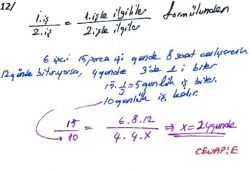 12/
1.iş / 2.iş = 1.işle ilgililer / 2.işle ilgililer formülünden
6 işçi 15 parça işi günde 8 saat çalışarak
12 günde bitiriyorsa, 4 günde 3'de 1 i biter
15·1/3=5 günlük iş biter.
10 günlük iş kalır.
15/10 = 6.8.12 / 4.4.X ⇒ x=24 günde
CEVAP:E